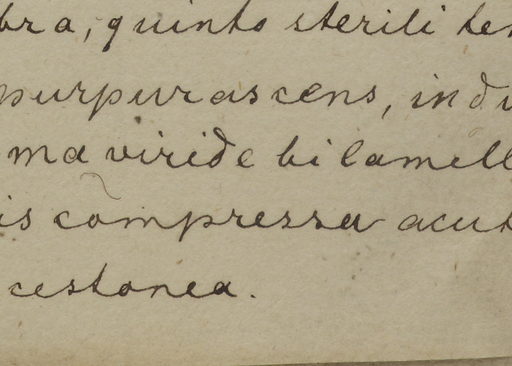 bra, quinto sterili ter
purpurascens, indu
ma viride bilamell
is compressa acut
cestonea.